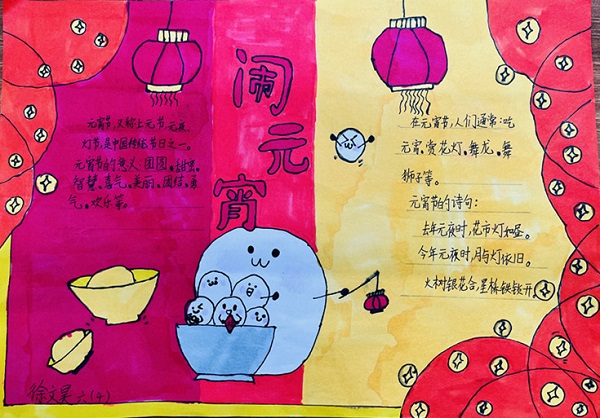 闹元宵
元宵节，又称上元节，元夜，
灯节，是中国传统节日之一。
元宵节的意义：团圆、甜蜜、
智慧、喜气、美丽、团结、勇
气、欢乐等。
在元宵节，人们通常：吃
元宵、赏花灯、舞龙、舞
狮子等。
元宵节的诗句：
去年元夜时，花市灯如昼。
今年元夜时，月与灯依旧。
火树银花合，星桥铁锁开。
徐文昊 六(4)